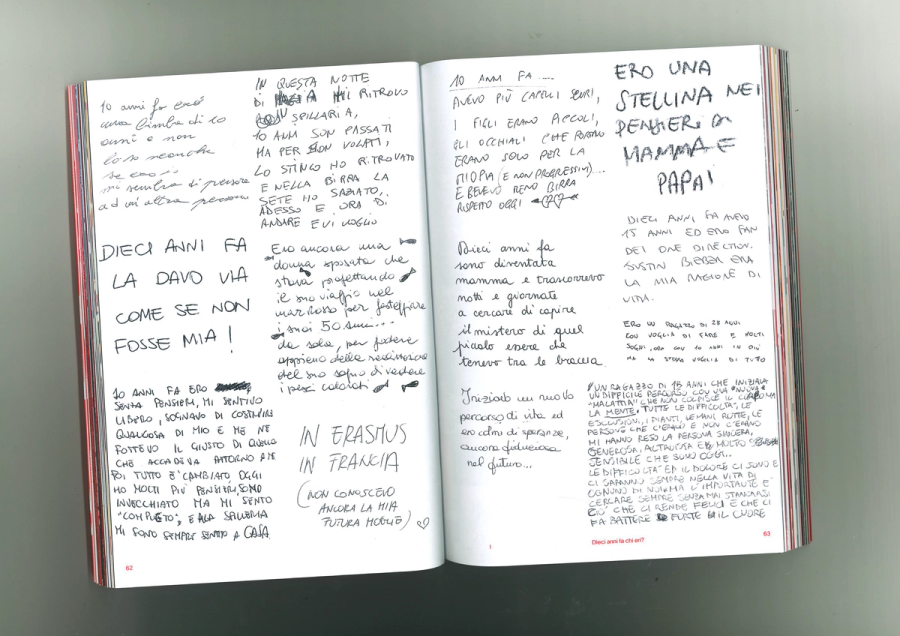 10 anni fa ero
una bimba di 10
anni e non
lo so neanche
se ero..
mi sembra di pensare
ad un'altra persona
IN QUESTA NOTTE
DI MI RITROVO
IN SPILLARIA,
10 ANNI SON PASSATI
MA PER NON VOLATI,
LO STINCO HO RITROVATO
E NELLA BIRRA LA
SETE HO SAZIATO,
ADESSO E ORA DI
ANDARE E VI VOGLIO
DIECI ANNI FA
LA DAVO VIA
COME SE NON
FOSSE MIA!
Ero ancora una
donna sposata che
stava progettando
il suo viaggio nel
mar rosso per festeggiare
i suoi 50 anni...
da sola, per godere
appieno della realizzazione
del suo sogno di vedere
i pesci colorati
10 ANNI FA ERO
SENZA PENSIERI, MI SENTIVO
LIBERO, SOGNAVO DI COSTRUIRE
QUALCOSA DI MIO E ME NE
FOTTEVO IL GIUSTO DI QUELLO
CHE ACCADEVA ATTORNO A ME
POI TUTTO E' CAMBIATO, OGGI
HO MOLTI PIÙ PENSIERI, SONO
INVECCHIATO MA MI SENTO
"COMPLETO", E ALLA SPILLERIA
MI SONO SEMPRE SENTITO A CASA
IN ERASMUS
IN FRANCIA
(NON CONOSCEVO
ANCORA LA MIA
FUTURA MOGLIE)
62
10 ANNI FA....
AVEVO PIÙ CAPELLI SCURI,
I FIGLI ERANO PICCOLI,
GLI OCCHIALI CHE PORTAVO
ERANO SOLO PER LA
MIOPIA (E NON PROGRESSIVI)...
E BEVEVO MENO BIRRA
RISPETTO OGGI
ERO UNA
STELLINA NEI
PENSIERI DI
MAMMA E
PAPA!
Dieci anni fa
sono diventata
mamma e trascorrevo
notti e giornate
a cercare di capire
il mistero di quel
piccolo essere che
tenevo tra le braccia
DIECI ANNI FA AVEVO
15 ANNI ED ERO FAN
DEI ONE DIRECTION.
JUSTIN BIEBER ERA
LA MIA RAGIONE DI
VITA.
ERO UN RAGAZZO DI 28 ANNI
CON VOGLIA DI FARE E MOLTI
SOGNI, ORA CON 10 ANNI IN PIÙ
HO LA STESSA VOGLIA DI TUTTO
Iniziavo un nuovo
percorso di vita ed
ero colma di speranze,
ancora fiduciosa
nel futuro...
UN RAGAZZO DI 15 ANNI CHE INIZIAVA
UN DIFFICILE PERCORSO CON UNA NUOVA
"MALATTIA" CHE NON COLPISCE IL CORPO MA
LA MENTE. TUTTE LE DIFFICOLTA', LE
ESCLUSIONI, I PIANTI, LE MANI ROTTE, LE
PERSONE CHE C'ERANO E NON C'ERANO
MI HANNO RESO LA PERSONA SINCERA,
GENEROSA, ALTRUISTA E MOLTO
SENSIBILE CHE SONO OGGI..
LE DIFFICOLTA' ED IL DOLORE CI SONO E
CI SARANNO SEMPRE NELLA VITA DI
OGNUNO DI NOI MA L'IMPORTANTE È
CERCARE SEMPRE SENZA MAI STANCARSI
CIO' CHE CI RENDE FELICI E CHE CI
FA BATTERE FORTE IL CUORE
Dieci anni fa chi eri?
63